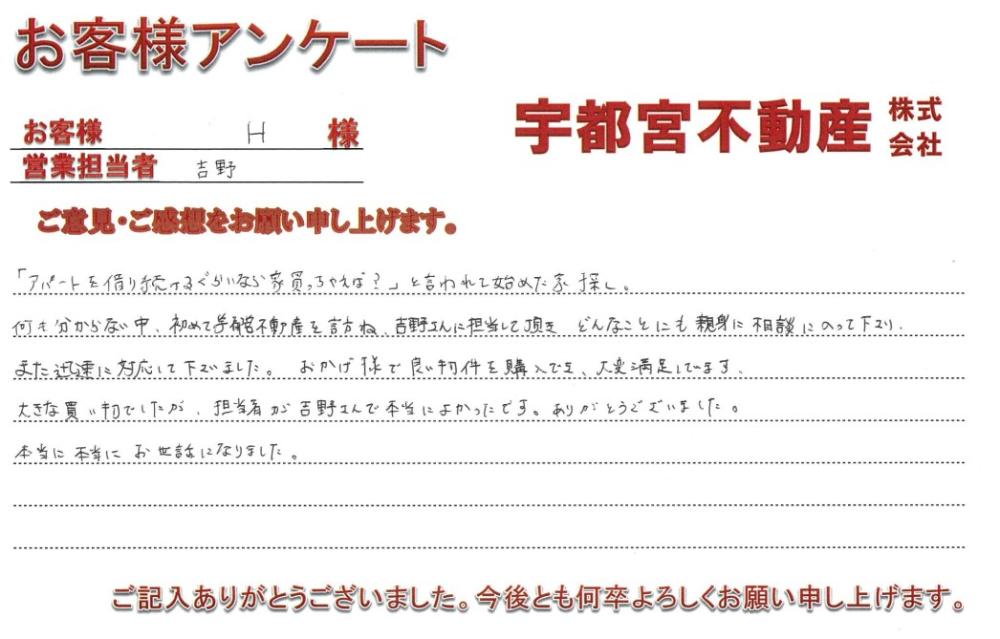 お客様アンケート
宇都宮不動産 株式会社
お客様 H 様
営業担当者 吉野
ご意見・ご感想をお願い申し上げます。
「アパートを借り続けるぐらいなら家買っちゃえば?」と言われて始めた家探し。
何も分からない中、初めて宇都宮不動産を訪ね、吉野さんに担当して頂き どんなことにも親身に相談にのって下さり、
また迅速に対応して下さいました。 おかげ様で良い物件を購入でき、大変満足しています。
大きな買い物でしたが、担当者が吉野さんで本当によかったです。ありがとうございました。
本当に本当にお世話になりました。
ご記入ありがとうございました。今後とも何卒よろしくお願い申し上げます。